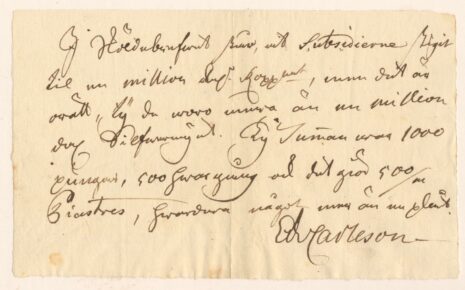 at Subsidierne stigit
til en million dal. Koppmt, men det är
orätt, Ty de woro mera än en million
dal. Silfwermynt. Ty Summan war 1000
pungar, 500 hwar gång och det giör 500/m
Piastres, hwardera något mer än en plåt.
Ed Carleson